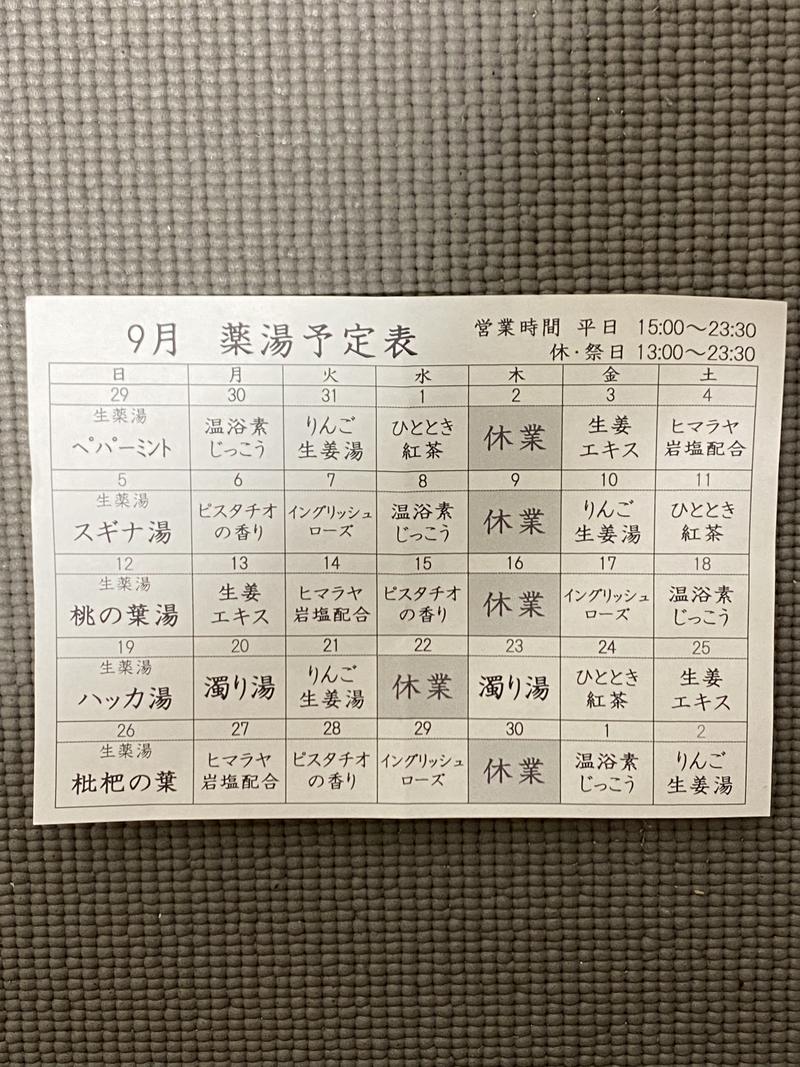 9月 薬湯予定表
営業時間 平日 15:00〜23:30
休・祭日 13:00〜23:30
日 月 火 水 木 金 土
29 30 31 1 2 3 4
生薬湯
ペパーミント
温浴素
じっこう
りんご
生姜湯
ひととき
紅茶
休業
生姜
エキス
ヒマラヤ
岩塩配合
5 6 7 8 9 10 11
生薬湯
スギナ湯
ピスタチオ
の香り
イングリッシュ
ローズ
温浴素
じっこう
休業
りんご
生姜湯
ひととき
紅茶
12 13 14 15 16 17 18
生薬湯
桃の葉湯
生姜
エキス
ヒマラヤ
岩塩配合
ピスタチオ
の香り
休業
イングリッシュ
ローズ
温浴素
じっこう
19 20 21 22 23 24 25
生薬湯
ハッカ湯
濁り湯
りんご
生姜湯
休業
濁り湯
ひととき
紅茶
生姜
エキス
26 27 28 29 30 1 2
生薬湯
枇杷の葉
ヒマラヤ
岩塩配合
ピスタチオ
の香り
イングリッシュ
ローズ
休業
温浴素
じっこう
りんご
生姜湯